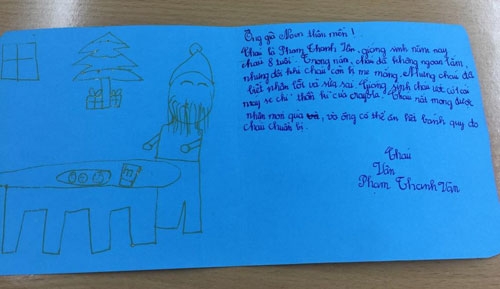 Ông già Noen thân mến!
Cháu là Phạm Thanh Vân, giáng sinh năm nay
cháu 8 tuổi. Trong năm, cháu đã không ngoan lắm,
nhưng đôi khi cháu còn bị mẹ mắng. Nhưng cháu đã
biết nhận lỗi và sửa sai. Giáng sinh cháu ước có cái
máy se chỉ thần kì của crayola. Cháu rất mong được
nhận món quà và, và ông có thể ăn hết bánh quy do
cháu chuẩn bị.
Cháu
Vân
Phạm Thanh Vân